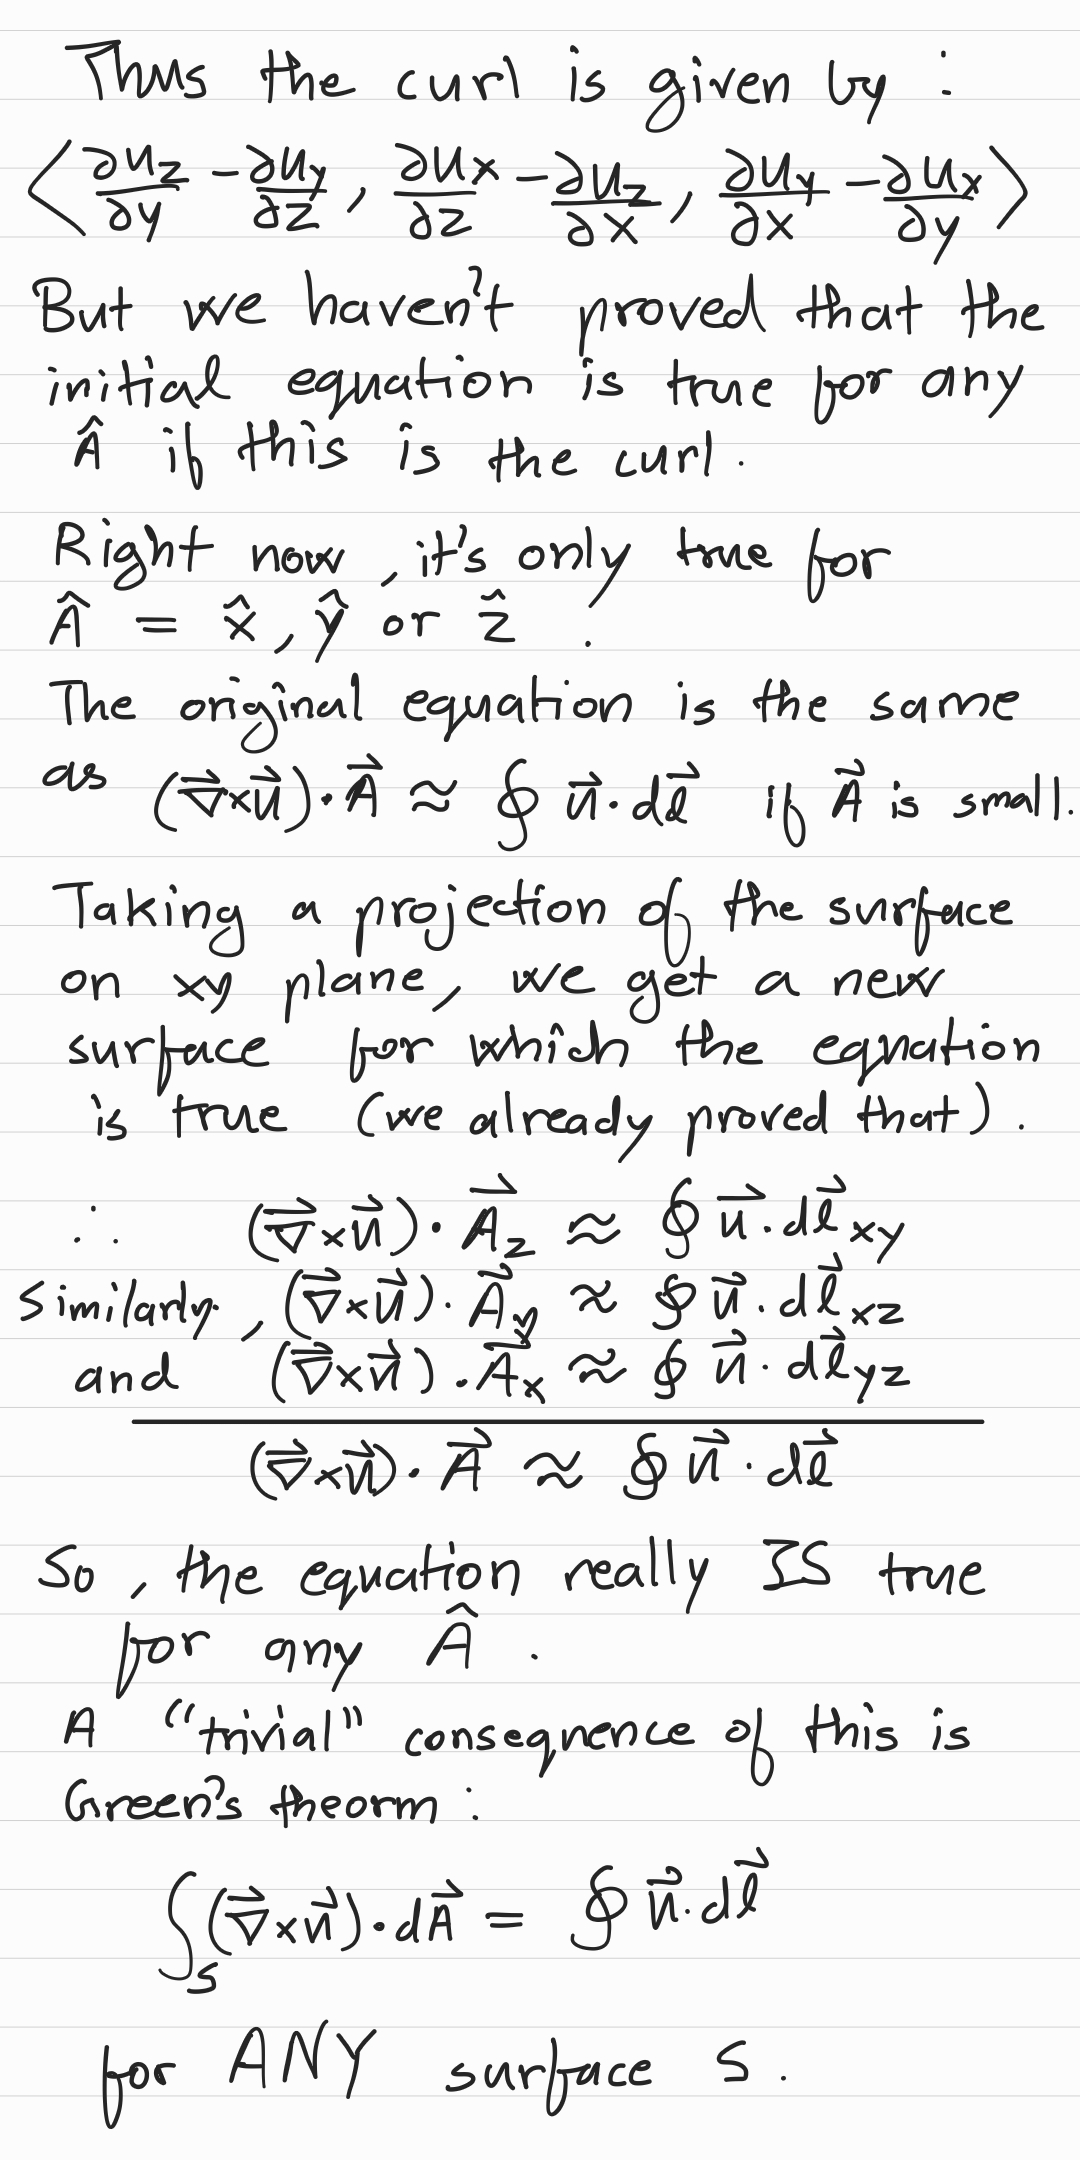 Thus the curl is given by :
⟨∂u_z/∂y − ∂u_y/∂z , ∂u_x/∂z − ∂u_z/∂x , ∂u_y/∂x − ∂u_x/∂y⟩
But we haven't proved that the
initial equation is true for any
Â if this is the curl.
Right now, it's only true for
Â = x̂, ŷ or ẑ .
The original equation is the same
as (∇⃗×u⃗)·A⃗ ≈ ∮ u⃗·dl⃗ if A⃗ is small.
Taking a projection of the surface
on xy plane, we get a new
surface for which the equation
is true (we already proved that).
∴ (∇⃗×u⃗)·A⃗_z ≈ ∮ u⃗·dl⃗_xy
Similarly, (∇⃗×u⃗)·A⃗_y ≈ ∮ u⃗·dl⃗_xz
and (∇⃗×u⃗)·A⃗_x ≈ ∮ u⃗·dl⃗_yz
(∇⃗×u⃗)·A⃗ ≈ ∮ u⃗·dl⃗
So, the equation really IS true
for any Â .
A "trivial" consequence of this is
Green's theorm :
∫_S (∇⃗×u⃗)·dA⃗ = ∮ u⃗·dl⃗
for ANY surface S .